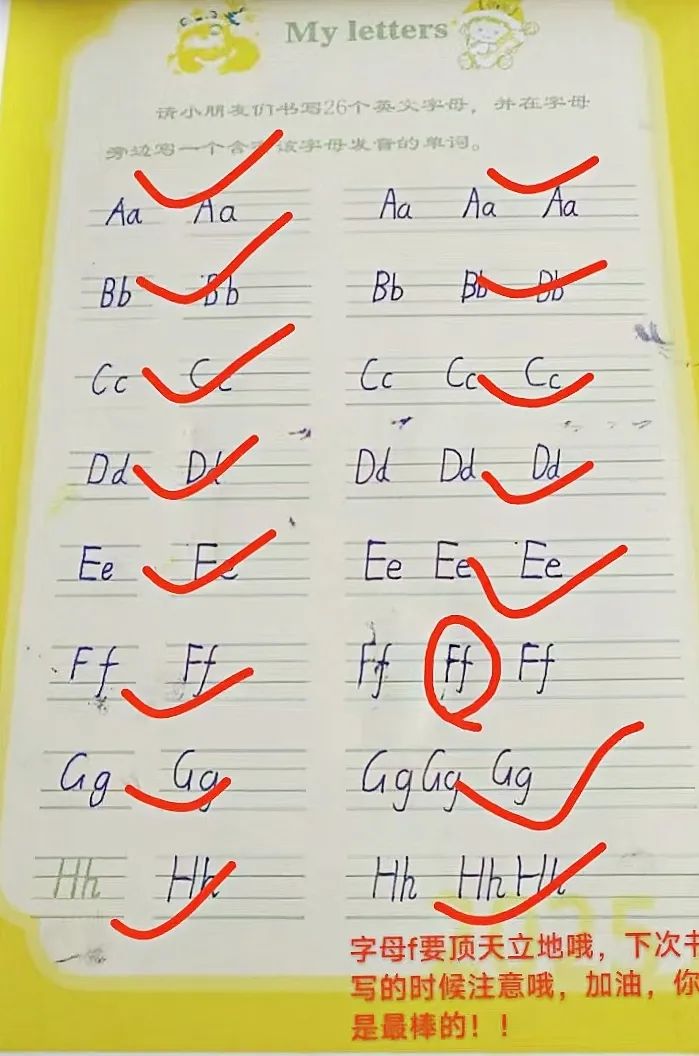 My letters
请小朋友们书写26个英文字母，并在字母
旁边写一个含有该字母发音的单词。
Aa Aa Aa Aa Aa
Bb Bb Bb Bb Bb
Cc Cc Cc Cc Cc
Dd Dd Dd Dd Dd
Ee Ee Ee Ee Ee
Ff Ff Ff Ff Ff
Gg Gg Gg Gg Gg
Hh Hh Hh Hh Hh
字母f要顶天立地哦，下次书
写的时候注意哦，加油，你
是最棒的！！